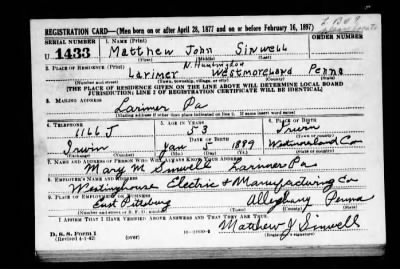 REGISTRATION CARD—(Men born on or after April 28, 1877 and on or before February 16, 1897)
SERIAL NUMBER 1. NAME (Print) ORDER NUMBER
U 1433 Matthew John Sinwell
(First) (Middle) (Last)
2. PLACE OF RESIDENCE (Print) N. Huntingdon
Larimer Westmoreland Penna
(Number and street) (Town, township, village, or city) (County) (State)
[THE PLACE OF RESIDENCE GIVEN ON THE LINE ABOVE WILL DETERMINE LOCAL BOARD
JURISDICTION; LINE 2 OF REGISTRATION CERTIFICATE WILL BE IDENTICAL]
3. MAILING ADDRESS
Larimer Pa
[Mailing address if other than place indicated on line 2. If same insert word same]
4. TELEPHONE 5. AGE IN YEARS 6. PLACE OF BIRTH
1166 J 53 Irwin
DATE OF BIRTH
Irwin Jan 5 1889 Westmoreland Co
(Exchange) (Number) (Mo.) (Day) (Yr.) (State or country)
7. NAME AND ADDRESS OF PERSON WHO WILL ALWAYS KNOW YOUR ADDRESS
Mary M Sinwell Larimer Pa
8. EMPLOYER'S NAME AND ADDRESS
Westinghouse Electric + Manufacturing Co
9. PLACE OF EMPLOYMENT OR BUSINESS
East Pittsburg Allegheny Penna
(Number and street or R. F. D. number) (Town) (County) (State)
I AFFIRM THAT I HAVE VERIFIED ABOVE ANSWERS AND THAT THEY ARE TRUE.
D. S. S. Form 1
(Revised 4-1-42) (over) Matthew J Sinwell